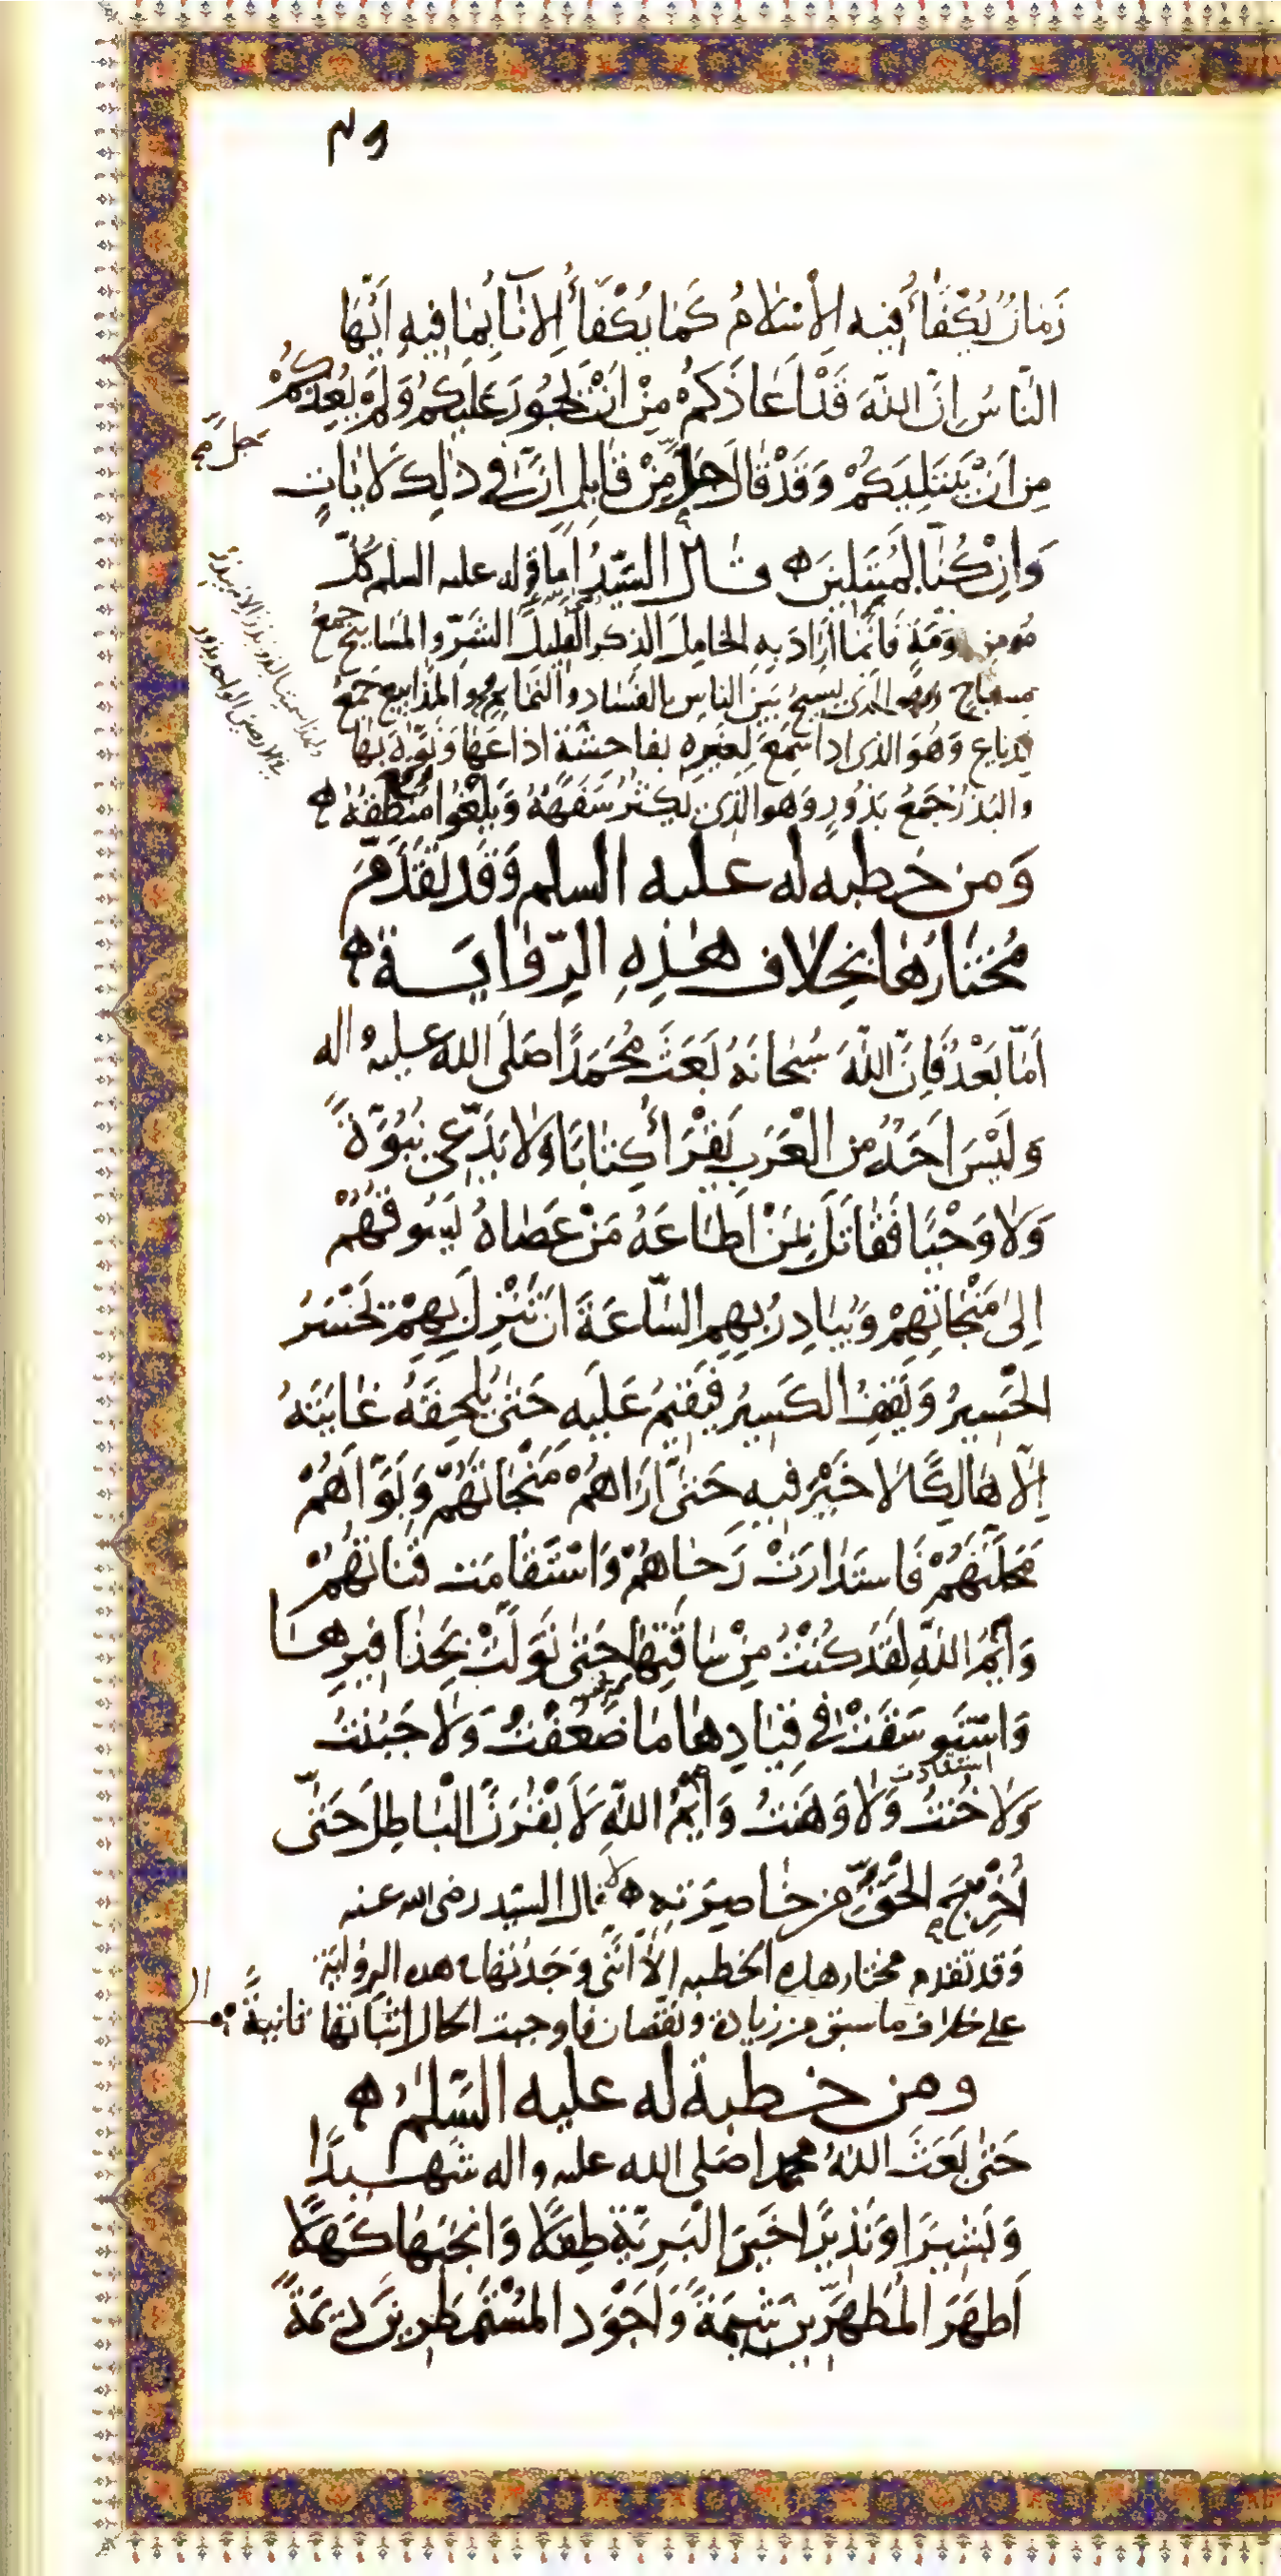 زَمانٌ يُكْفَأُ فِيهِ الْاِسْلَامُ كَمَا يُكْفَأُ الْاِنَاءُ بِمَا فِيهِ اَيُّهَا
النَّاسُ اِنَّ اللهَ قَدْ اَعَاذَكُمْ مِنْ اَنْ يَجُورَ عَلَيْكُمْ وَلَمْ يُعِذْكُمْ
مِن اَنْ يَبْتَلِيَكُمْ وَقَدْ قَالَ جَلَّ مِنْ قَائِلٍ اِنَّ فى ذلِكَ لَآيَاتٍ
جلّ
وَاِنْ كُنَّا لَمُبْتَلِينَ قال السَّيّدُ اما قوله عليه السلم كُلّ
مُومِنٍ نُوَمَةٍ فَانَّمَا اَرَادَ بِهِ الخامِلَ الذكر القليلَ الشَّرّ والمسَاييح جمعُ
مسياح وهو الذى يسيح بَينَ الناس بالفسَاد والنمائم والمذاييع جمعُ
مذياع وَهُوَ الذى اذا سَمِعَ لِغَيرِهِ بفاحشَة اذاعَها وَنَوَّهَ بها
والبُذرُ جَمعُ بَذُورٍ وَهو الذى يكثرُ سَفَهُهُ وَيَلْغُوا مَنْطِقُهُ
وَمن خطبه له عليه السلم وَقَد تَقَدَّمَ
مُخْتَارُهَا بخِلَافِ هٰذِهِ الرِّوَايَةِ
اَمَّا بَعْدُ فَاِنَّ اللهَ سُبْحانَهُ بَعَثَ مُحَمَّدًا صَلى الله عليه واله
وَلَيْسَ اَحَدٌ مِن الْعَرَبِ يَقْرَأُ كِتَابًا وَلَا يَدَّعِى نُبُوَّةً
وَلَا وَحْيًا فَقَاتَلَ بِمَنْ اَطَاعَهُ مَنْ عَصَاهُ يَسُوقُهُمْ
اِلى مَنْجَاتِهِمْ وَيُبَادِرُ بِهِمِ السَّاعَةَ اَنْ تَنْزِلَ بِهِمْ يَحْسَرُ
الْحَسِيرُ وَيَقِفُ الكَسِيرُ فَيُقِيمُ عَلَيهِ حَتّى يُلْحِقَهُ غَايَتَهُ
اِلَّا هَالِكًا لَا خَيْرَ فِيهِ حَتّى اَرَاهُمْ مَنْجَاتَهُمْ وَبَوَّاَهُمْ
مَحَلَّتَهُمْ فَاستَدَارَتْ رَحَاهُمْ وَاسْتَقَامَت قَنَاتُهُمْ
وَاَيْمُ اللهِ لَقَد كُنْتُ مِنْ سَاقَتِهَا حَتّى تَوَلَّتْ بِحَذَافِيرِهَا
وَاسْتَوسَقَتْ فى قِيَادِهَا مَا ضَعُفْتُ وَلَا جَبُنْتُ
استقادت
وَلَا خُنْتُ وَلَا وَهَنتُ وَاَيْمُ اللهِ لَاَبْقُرَنَّ الْبَاطِلَ حَتّى
اُخْرِجَ الْحَقَّ مِن خَاصِرَتِهِ قال السّيد رضى الله عنه
وَقد تقدم مختار هذه الخطبه اِلّا اَنَّنِى وَجَدْتُها فى هذه الرواية
على خلاف ما سبق من زيادة ونقصان فاوجبت الحال اثباتها ثانيةً
ومن خطبة له عليه السَّلَمُ
حَتّى بَعَثَ اللهُ محمدا صَلى الله عليه واله شَهِيدًا
وَبَشِيرًا وَنَذِيرًا خَيرَ الْبَرِيَّةِ طِفلًا وَاَنْجَبَهَا كَهلًا
اَطهَرَ الْمُطَهَّرِينَ شِيمَةً وَاَجْوَدَ الْمُسْتَمطَرِينَ دِيمَةً